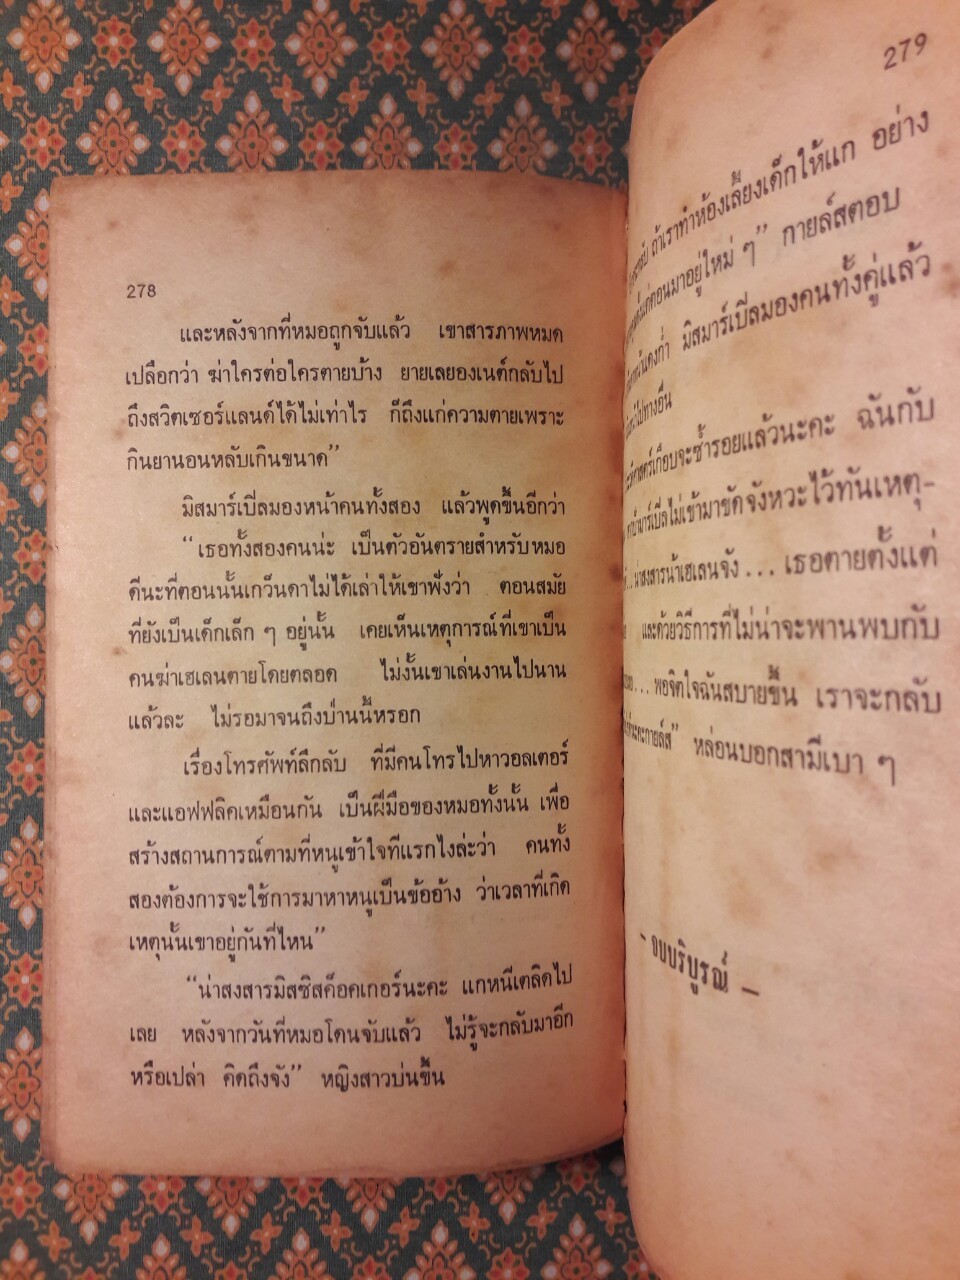 278
และหลังจากที่หมอถูกจับแล้ว เขาสารภาพหมด
เปลือกว่า ฆ่าใครต่อใครตายบ้าง ยายเลยองเนต์กลับไป
ถึงสวิตเซอร์แลนด์ได้ไม่เท่าไร ก็ถึงแก่ความตายเพราะ
กินยานอนหลับเกินขนาด”
มิสมาร์เปิ่ลมองหน้าคนทั้งสอง แล้วพูดขึ้นอีกว่า
“เธอทั้งสองคนน่ะ เป็นตัวอันตรายสำหรับหมอ
ดีนะที่ตอนนั้นเกว็นดาไม่ได้เล่าให้เขาฟังว่า ตอนสมัย
ที่ยังเป็นเด็กเล็ก ๆ อยู่นั้น เคยเห็นเหตุการณ์ที่เขาเป็น
คนฆ่าเฮเลนตายโดยตลอด ไม่งั้นเขาเล่นงานไปนาน
แล้วละ ไม่รอมาจนถึงป่านนี้หรอก
เรื่องโทรศัพท์ลึกลับ ที่มีคนโทรไปหาวอลเตอร์
และแอฟฟลิคเหมือนกัน เป็นฝีมือของหมอทั้งนั้น เพื่อ
สร้างสถานการณ์ตามที่หนูเข้าใจทีแรกไงล่ะว่า คนทั้ง
สองต้องการจะใช้การมาหาหนูเป็นข้ออ้าง ว่าเวลาที่เกิด
เหตุนั้นเขาอยู่กันที่ไหน”
“น่าสงสารมิสซิสค็อคเกอร์นะคะ แกหนีเตลิดไป
เลย หลังจากวันที่หมอโดนจับแล้ว ไม่รู้จะกลับมาอีก
หรือเปล่า คิดถึงจัง” หญิงสาวบ่นขึ้น
279
ถ้าเราทำห้องเลี้ยงเด็กให้แก อย่าง
ตั้งแต่ตอนมาอยู่ใหม่ ๆ” กายล์สตอบ
มิสมาร์เปิ่ลมองคนทั้งคู่แล้ว
ไปทางอื่น
เกือบจะซ้ำรอยแล้วนะคะ ฉันกับ
มาร์เปิ่ลไม่เข้ามาขัดจังหวะไว้ทันเหตุ-
... น่าสงสารน้าเฮเลนจัง ... เธอตายตั้งแต่
และด้วยวิธีการที่ไม่น่าจะพานพบกับ
... พอจิตใจฉันสบายขึ้น เราจะกลับ
นะคะกายล์ส” หล่อนบอกสามีเบา ๆ
- จบบริบูรณ์ -